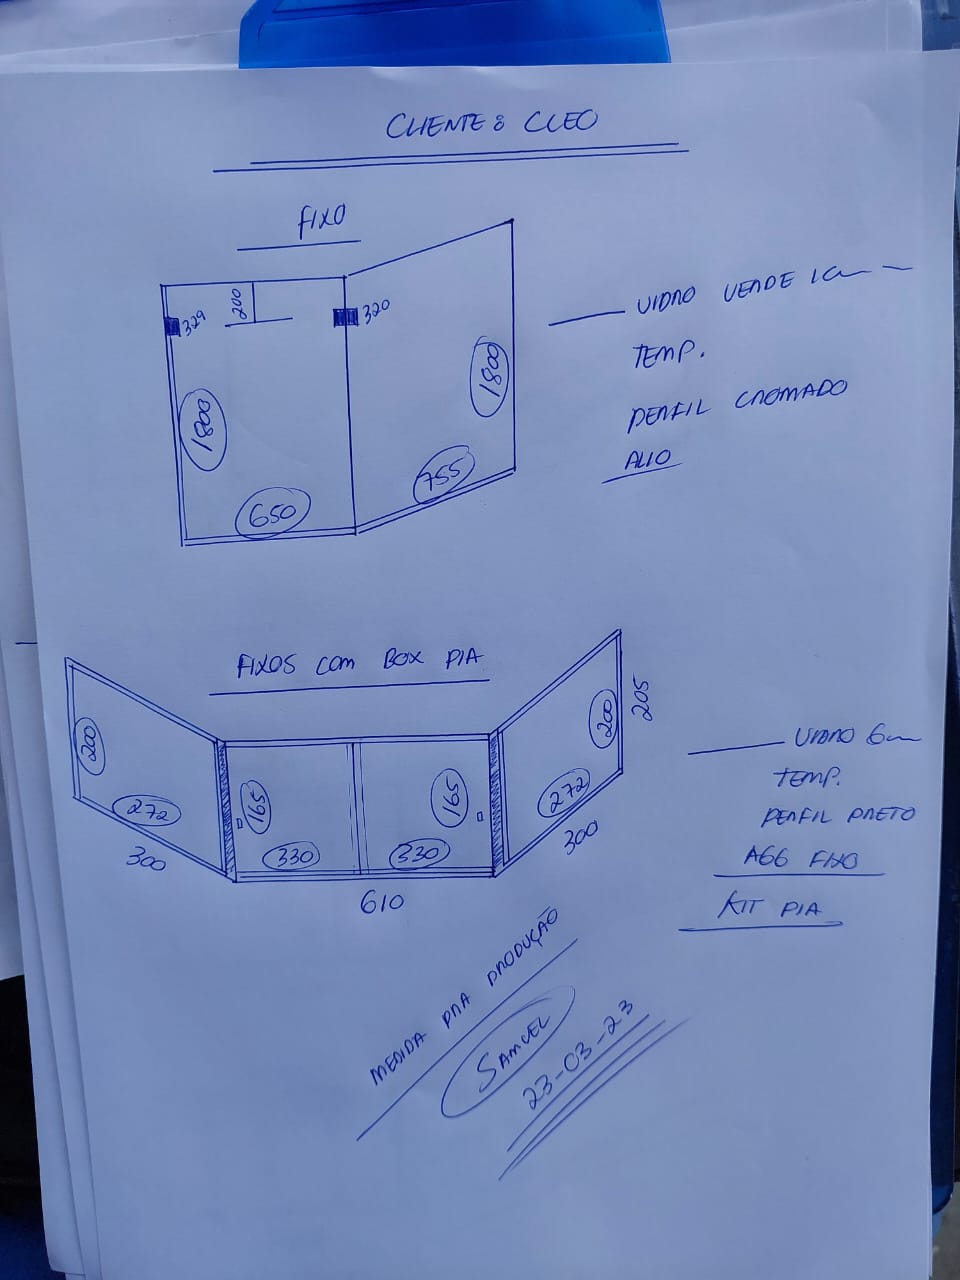 CLIENTE: CLEO
FIXO
200
329
320
1800
1800
650
755
VIDRO VERDE 1cm
TEMP.
PERFIL CROMADO
FIXOS COM BOX PIA
200
272
300
165
165
330
330
610
200
205
272
300
VIDRO 6m
TEMP.
PERFIL PRETO
KIT PIA
MEDIDA PRA PRODUÇÃO
SAMUEL
23-03-23